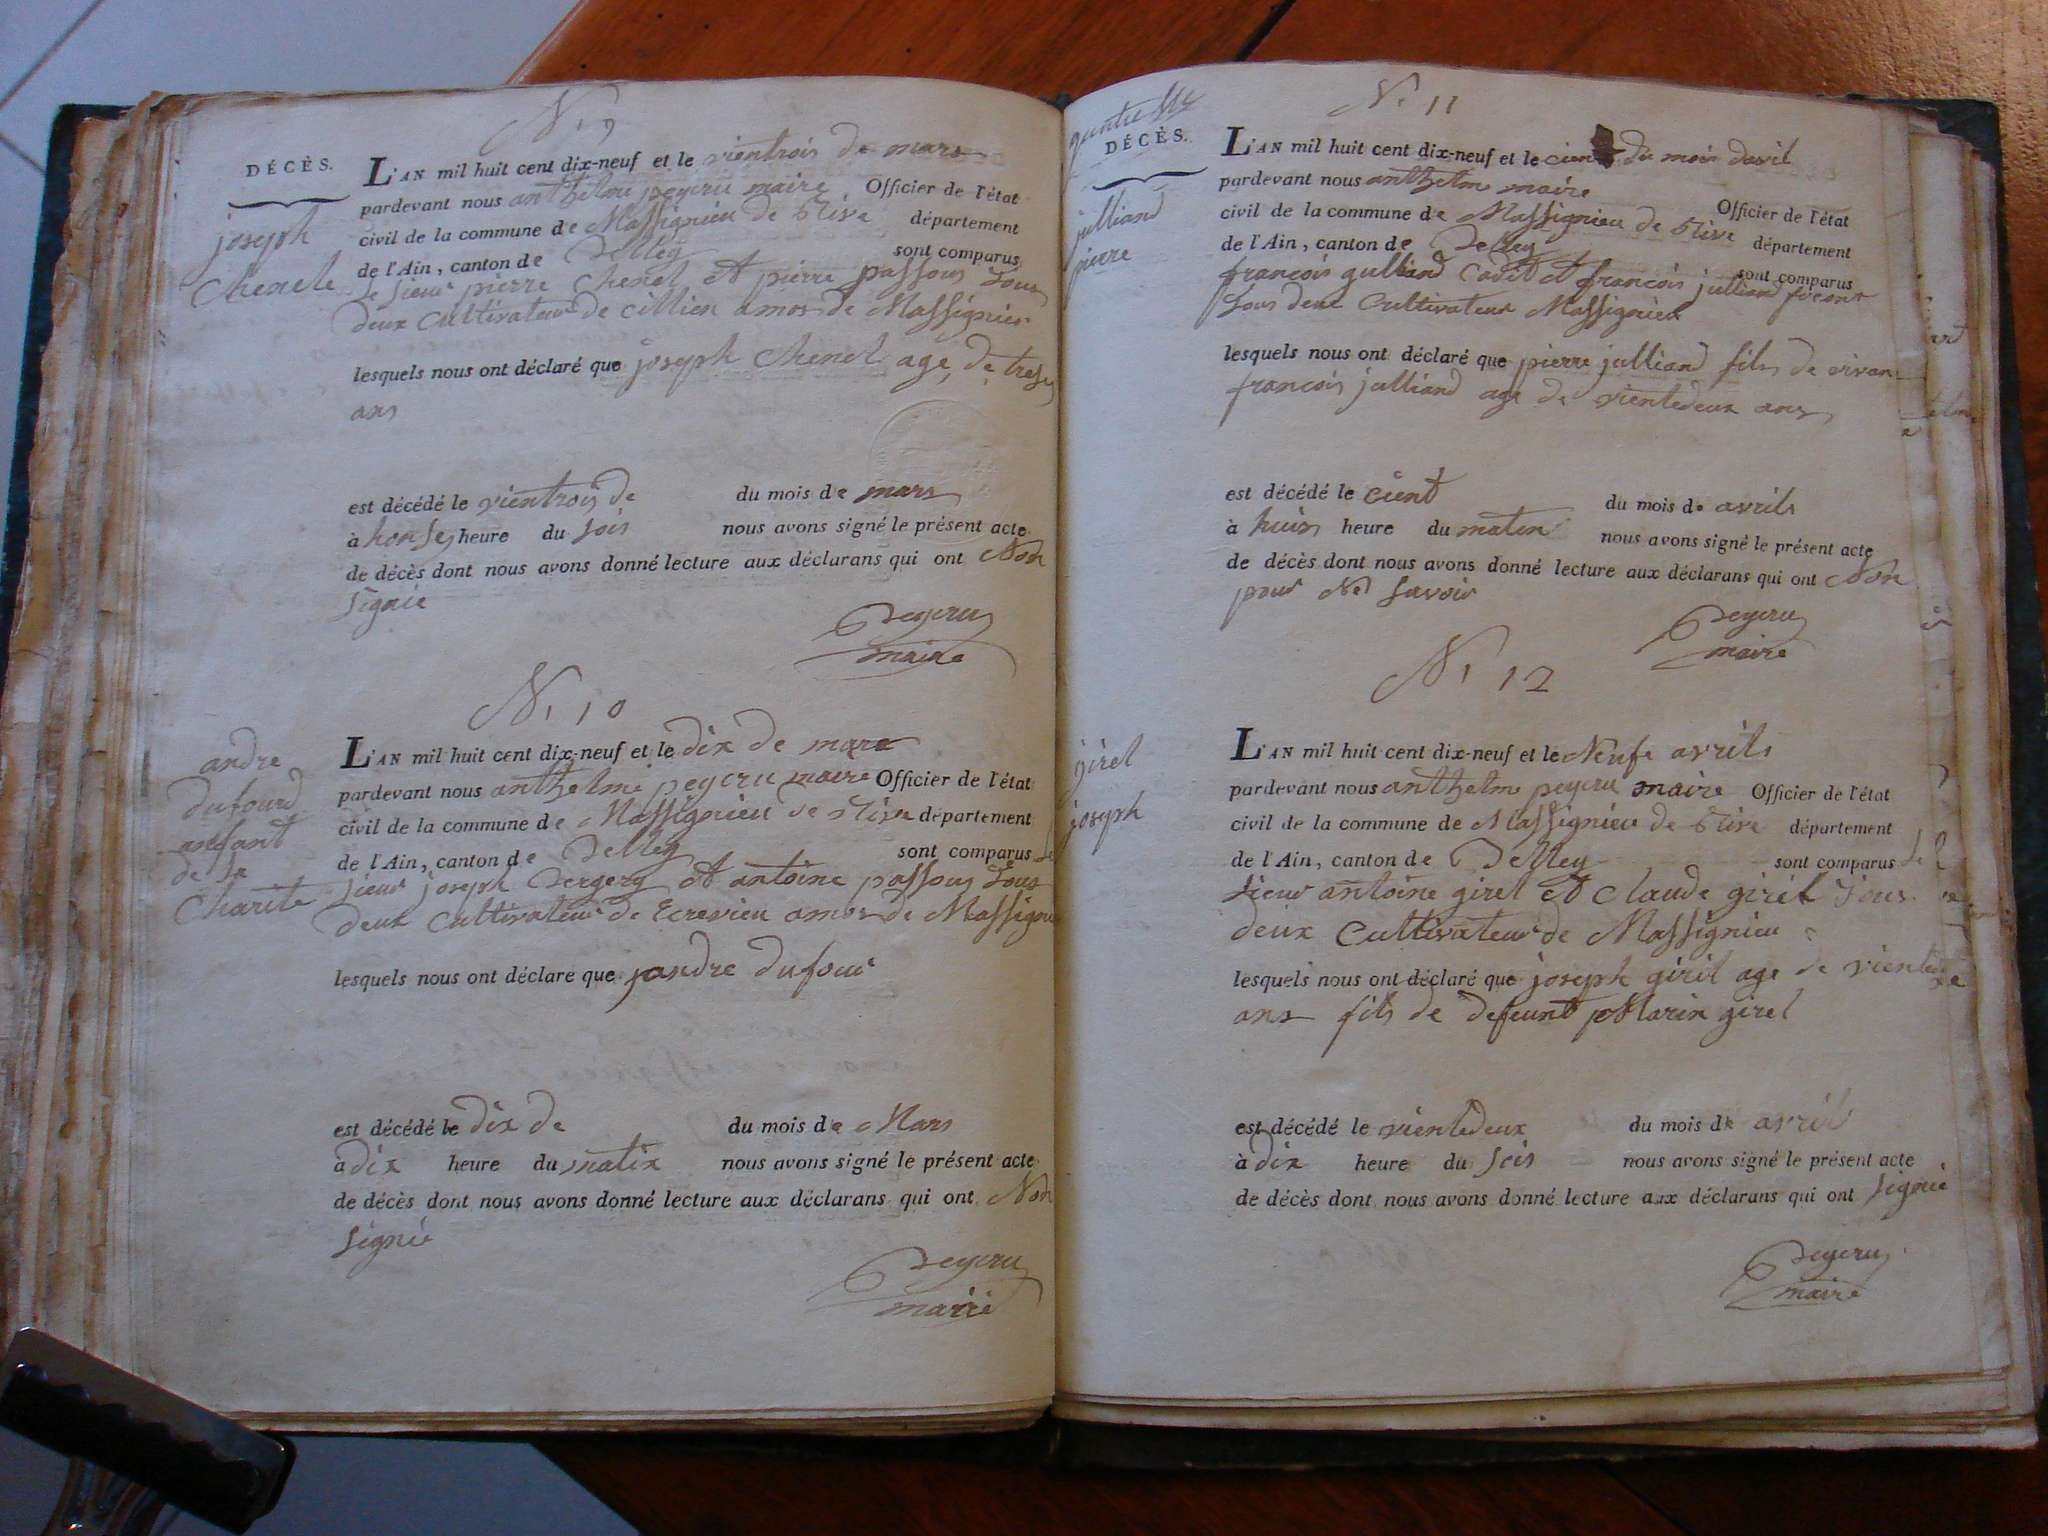 N. 9
DÉCÈS.
joseph
Chenele
L'AN mil huit cent dix-neuf et le vientrois de mars
pardevant nous anthelme peyeru maire Officier de l'état
civil de la commune de Massignieu de Rive département
de l'Ain, canton de Belley sont comparus
le sieur pierre Chenel et pierre passous tous
deux Cultivateur de cillien amos de Massignieu
lesquels nous ont déclaré que joseph Chenel age de treses
ans
est décédé le vientrois de du mois de mars
à honses heure du soir nous avons signé le présent acte
de décès dont nous avons donné lecture aux déclarans qui ont Non
signie
peyeru
maire
N. 10
andre
dufourd
anfant
de la
Charite
L'AN mil huit cent dix-neuf et le dix de mars
pardevant nous anthelme peyeru maire Officier de l'état
civil de la commune de Massignieu de Rive département
de l'Ain, canton de Belley sont comparus le
sieur joseph Bergery et antoine passous tous
deux Cultivateur de Ecrevieu amos de Massignieu
lesquels nous ont déclaré que andre dufour
est décédé le dix de du mois de Mars
à dix heure du matin nous avons signé le présent acte
de décès dont nous avons donné lecture aux déclarans qui ont Non
signié
peyeru
maire
N. 11
DÉCÈS.
julliand
pierre
L'AN mil huit cent dix-neuf et le cient du mois davil
pardevant nous anthelme maire Officier de l'état
civil de la commune de Massignieu de Rive département
de l'Ain, canton de Belley sont comparus
françois gulliand Cadet et françois julliand
tous deux Cultivateur Massignieu
lesquels nous ont déclaré que pierre julliand fils de vivant
françois julliand age de vientedeux ans
est décédé le cient du mois de avrils
à huis heure du matin nous avons signé le présent acte
de décès dont nous avons donné lecture aux déclarans qui ont Non
pour Ne savoir
peyeru
maire
N. 12
girel
joseph
L'AN mil huit cent dix-neuf et le Neufe avrils
pardevant nous anthelme peyeru maire Officier de l'état
civil de la commune de Massignieu de Rive département
de l'Ain, canton de Belley sont comparus le
sieur antoine girel et Claude girel tous
deux Cultivateur de Massignieu
lesquels nous ont déclaré que joseph girel age de
ans fils de defeunt Marin girel
est décédé le vientedeux du mois de avril
à dix heure du soir nous avons signé le présent acte
de décès dont nous avons donné lecture aux déclarans qui ont signié
peyeru
maire